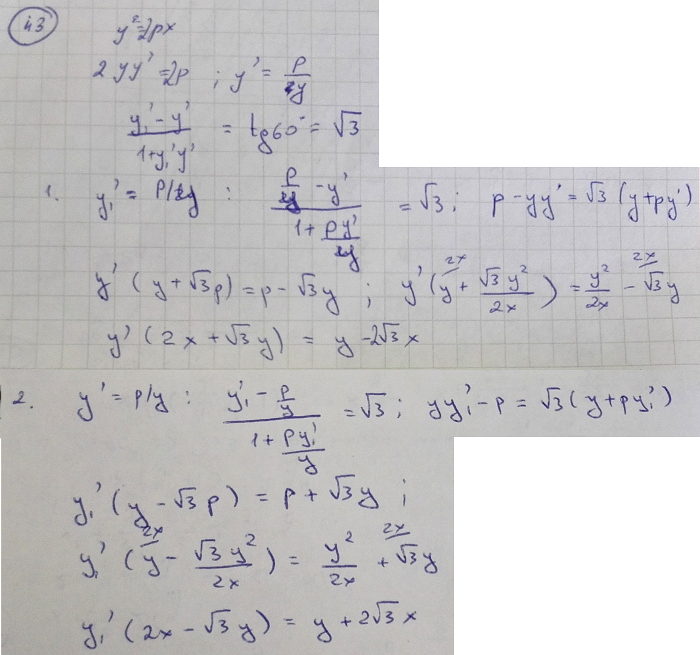 43
y² = 2px
2yy' = 2p ; y' = p/y
(y₁' - y')/(1 + y₁'y') = tg60° = √3
1. y₁' = p/y : (p/y - y')/(1 + py'/y) = √3 ; p - yy' = √3 (y + py')
y' (y + √3p) = p - √3y ; y' (y + √3y²/2x) = y²/2x - √3y
2x 2x
y' (2x + √3y) = y - 2√3x
2. y' = p/y : (y₁' - p/y)/(1 + py₁'/y) = √3 ; yy₁' - p = √3 (y + py₁')
y₁' (y - √3p) = p + √3y ;
y₁' (y - √3y²/2x) = y²/2x + √3y
2x 2x
y₁' (2x - √3y) = y + 2√3x